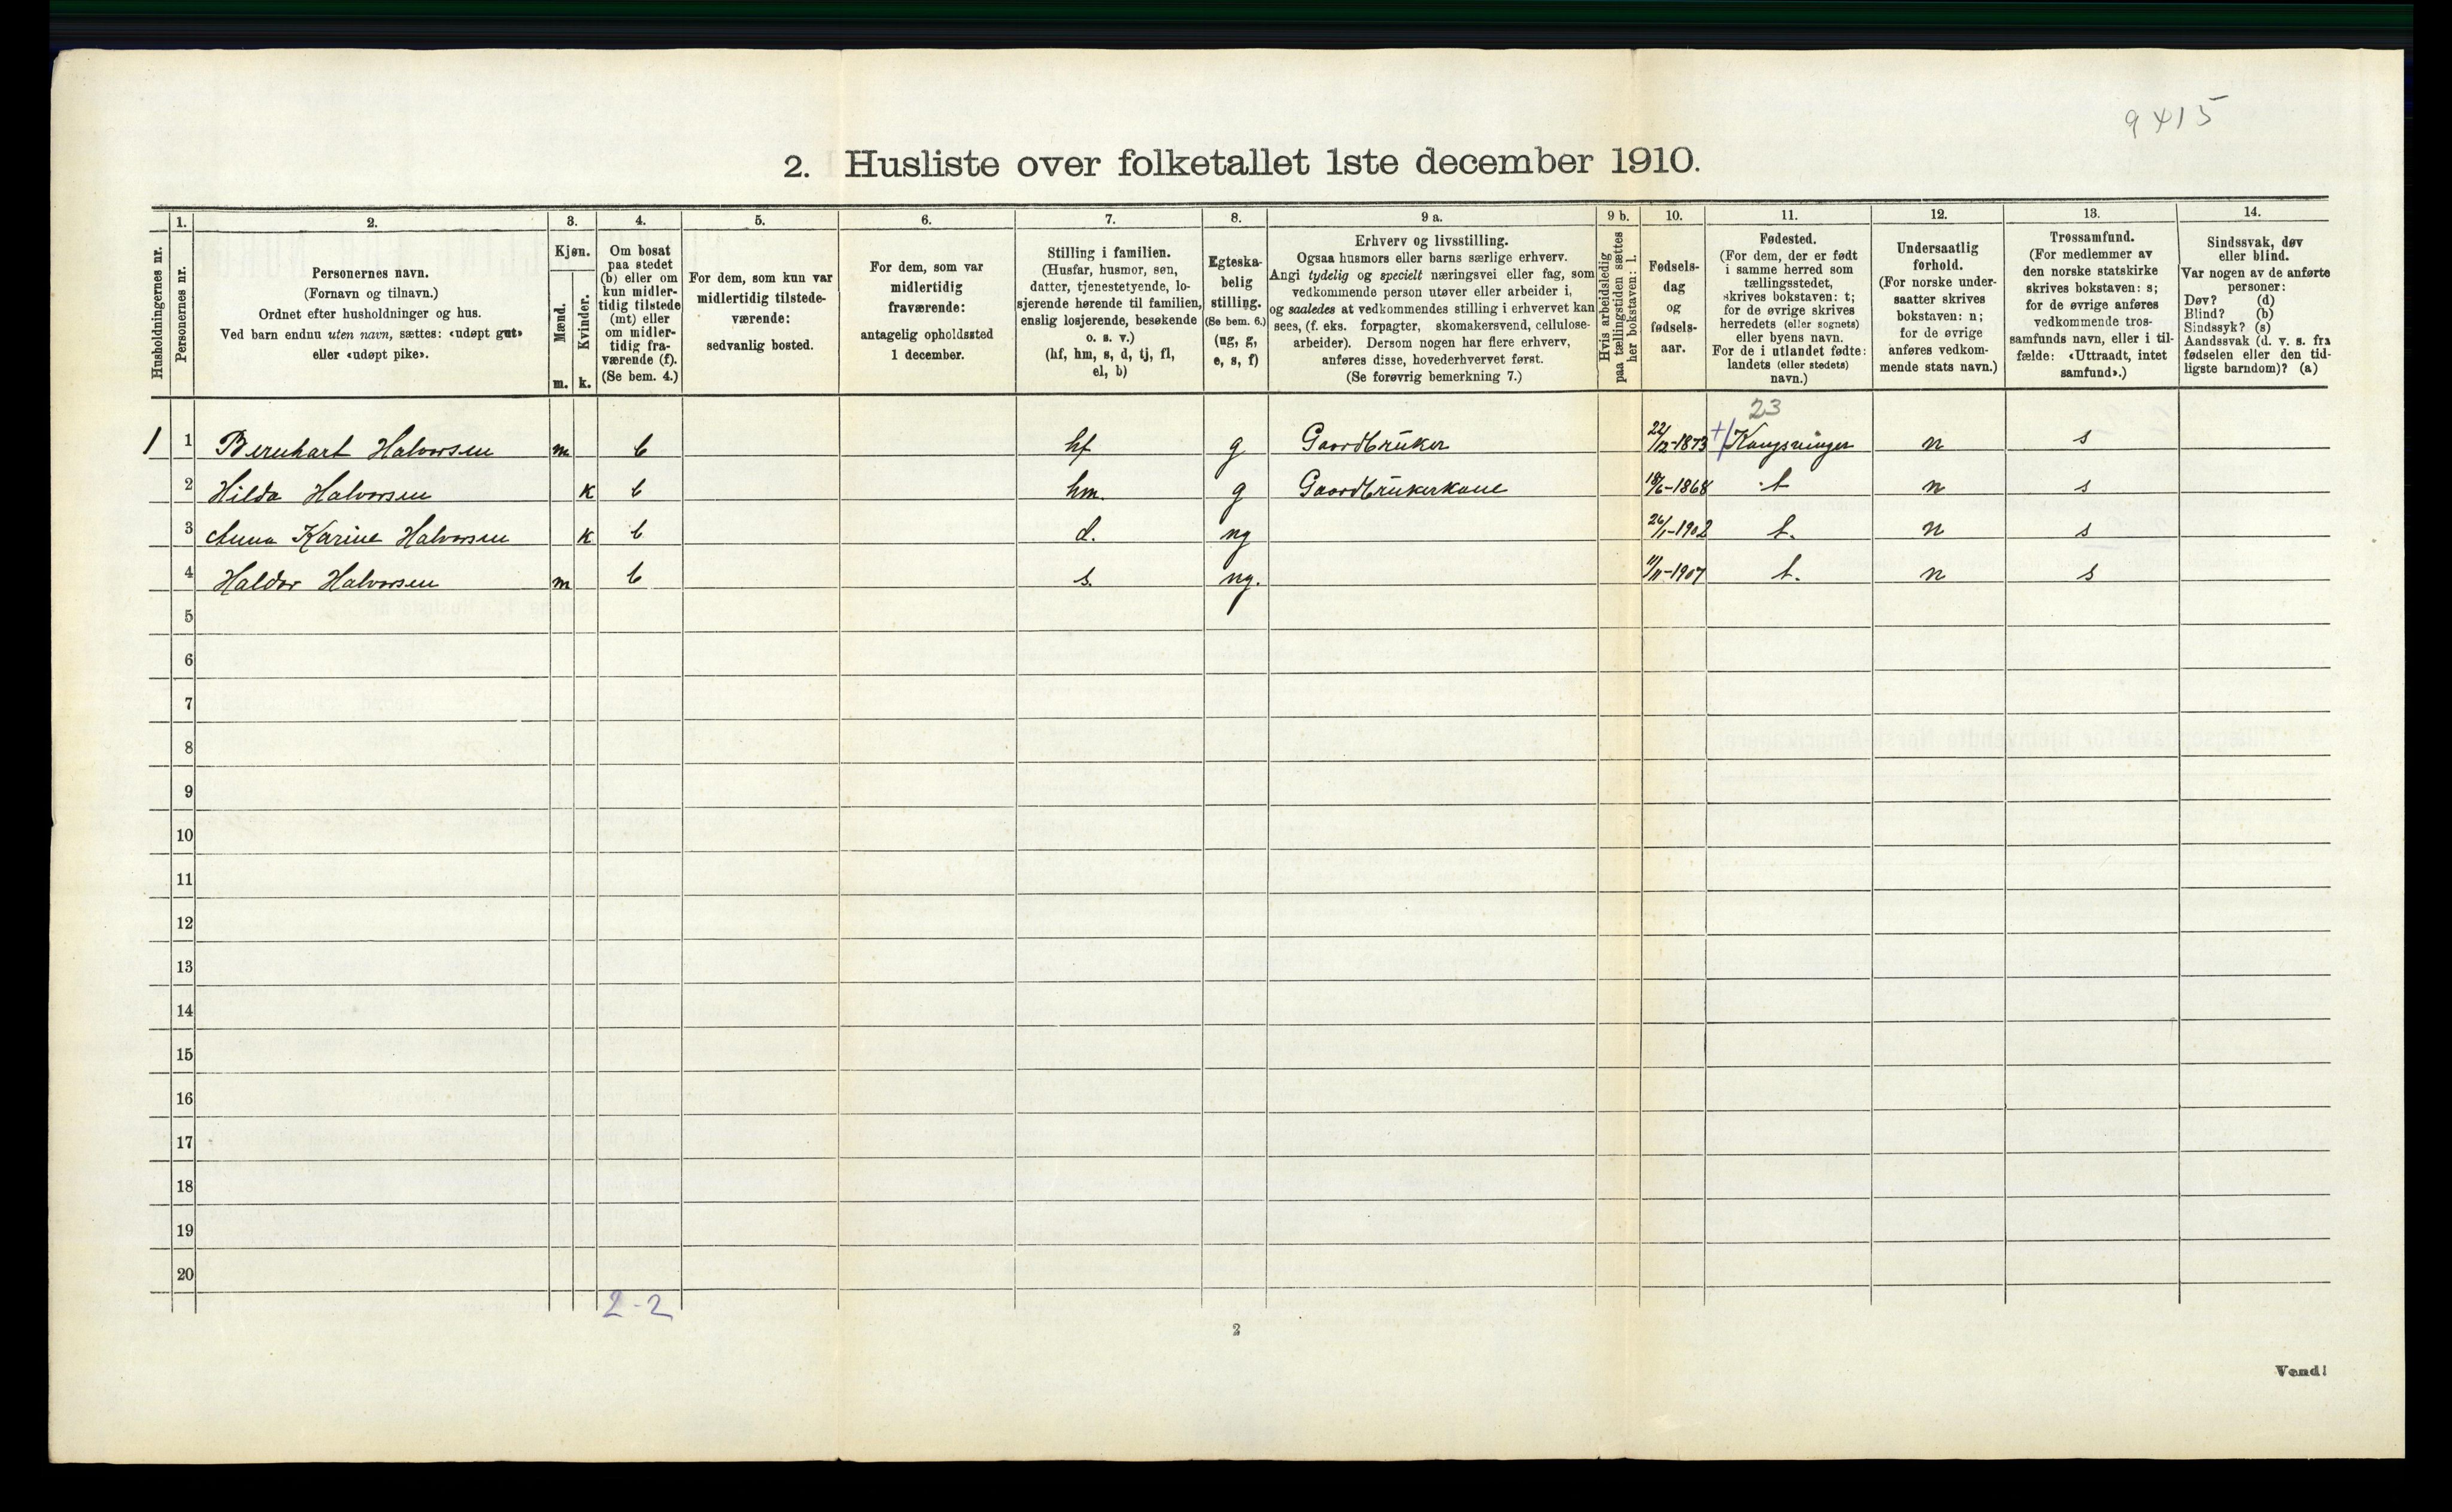 9415
2. Husliste over folketallet 1ste december 1910.
1. 2. 3. 4. 5. 6. 7. 8. 9 a. 9 b. 10. 11. 12. 13. 14.
Husholdningernes nr.
Personernes nr.
Personernes navn.
(Fornavn og tilnavn.)
Ordnet efter husholdninger og hus.
Ved barn endnu uten navn, sættes: «udøpt gut»
eller «udøpt pike».
Kjøn.
Mænd.
Kvinder.
m. k.
Om bosat
paa stedet
(b) eller om
kun midler-
tidig tilstede
(mt) eller
om midler-
tidig fra-
værende (f).
(Se bem. 4.)
For dem, som kun var
midlertidig tilstede-
værende:
sedvanlig bosted.
For dem, som var
midlertidig
fraværende:
antagelig opholdssted
1 december.
Stilling i familien.
(Husfar, husmor, søn,
datter, tjenestetyende, lo-
sjerende hørende til familien,
enslig losjerende, besøkende
o. s. v.)
(hf, hm, s, d, tj, fl,
el, b)
Egteska-
belig
stilling.
(Se bem. 6.)
(ug, g,
e, s, f)
Erhverv og livsstilling.
Ogsaa husmors eller barns særlige erhverv.
Angi tydelig og specielt næringsvei eller fag, som
vedkommende person utøver eller arbeider i,
og saaledes at vedkommendes stilling i erhvervet kan
sees, (f. eks. forpagter, skomakersvend, cellulose-
arbeider). Dersom nogen har flere erhverv,
anføres disse, hovederhvervet først.
(Se forøvrig bemerkning 7.)
Hvis arbeidsledig
paa tællingstiden sættes
her bokstaven: l.
Fødsels-
dag
og
fødsels-
aar.
Fødested.
(For dem, der er født
i samme herred som
tællingsstedet,
skrives bokstaven: t;
for de øvrige skrives
herredets (eller sognets)
eller byens navn.
For de i utlandet fødte:
landets (eller stedets)
navn.)
Undersaatlig
forhold.
(For norske under-
saatter skrives
bokstaven: n;
for de øvrige
anføres vedkom-
mende stats navn.)
Trossamfund.
(For medlemmer av
den norske statskirke
skrives bokstaven: s;
for de øvrige anføres
vedkommende tros-
samfunds navn, eller i til-
fælde: «Uttraadt, intet
samfund».)
Sindssvak, døv
eller blind.
Var nogen av de anførte
personer:
Døv? (d)
Blind? (b)
Sindssyk? (s)
Aandssvak (d. v. s. fra
fødselen eller den tid-
ligste barndom)? (a)
23
1 1 Bernhart Halvorsen m b hf g Gaardbrüker 22/12-1873 Kongsvinger n s
2 Hilda Halvorsen k b hm. g Gaardbrükerkone 18/6-1868 t n s
3 Anna Karine Halvorsen k b d. ug 26/1-1902 t. n s
4 Haldor Halvorsen m b s. ug. 11/11-1907 t. n s
5
6
7
8
9
10
11
12
13
14
15
16
17
18
19
20
2-2
2
Vend!